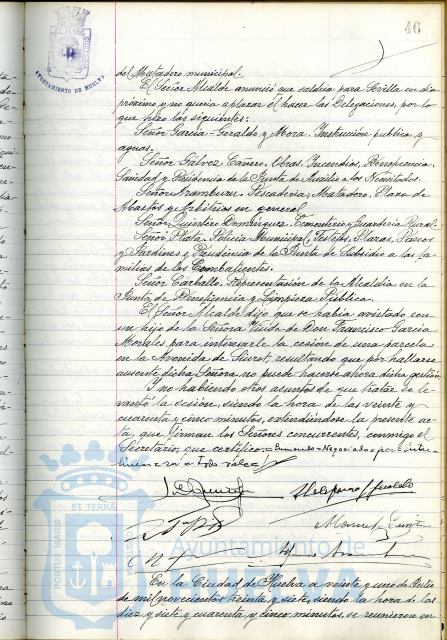 46
AYUNTAMIENTO DE HUELVA
del Matadero municipal.
El Señor Alcalde anunció que saldría para Sevilla en dia
próximo y no queria aplazar el hacer las Delegaciones, por lo
que hizo las siguientes:
Señor Garcia-Geraldo y Mora. Instrucción publica y
aguas.
Señor Gálvez Cañero. Obras, Incendios, Beneficencia,
Sanidad y Presidencia de la Junta de Auxilio a los Necesitados.
Señor Aramburu. Pescaderia, Matadero, Plaza de
Abastos y Arbitrios en general.
Señor Quintero Dominguez. Cementerio y Guarderia Rural.
Señor Plata. Policia Municipal, Festejos, Plazas, Paseos
y Jardines y Presidencia de la Junta de Subsidio a las fa
milias de los Combatientes.
Señor Carballo. Representación de la Alcaldia en la
Junta de Beneficencia y Limpieza Pública.
El Señor Alcalde dijo que se habia avistado con
un hijo de la Señora Viuda de Don Francisco Garcia
Morales para interesarle la cesión de una parcela
en la Avenida de Siurot, resultando que por hallarse
ausente dicha Señora no puede hacerse ahora dicha gestión.
Y no habiendo otros asuntos de que tratar se le
vantó la sesión, siendo la hora de las veinte y
cuarenta y cinco minutos, extendiéndose la presente ac
ta, que firman los Señores concurrentes, conmigo el
Secretario, que certifico =
En la Ciudad de Huelva a veinte y uno de
de mil novecientos treinta y siete, siendo la hora de las
diez y siete y cuarenta y cinco minutos, se reunieron en
PORTUS MARIS ET TERRAE
Ayuntamiento de
HUELVA